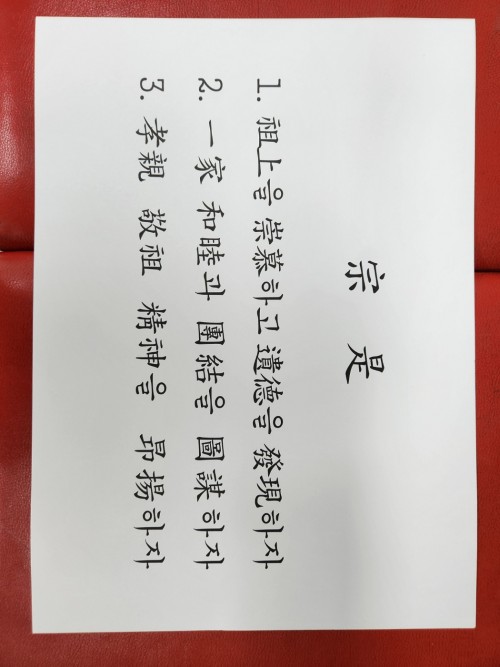 宗是
1. 祖上을 崇慕하고 遺德을 發現하자
2. 一家 和睦과 團結을 圖謀하자
3. 孝親 敬祖 精神을 昂揚하자